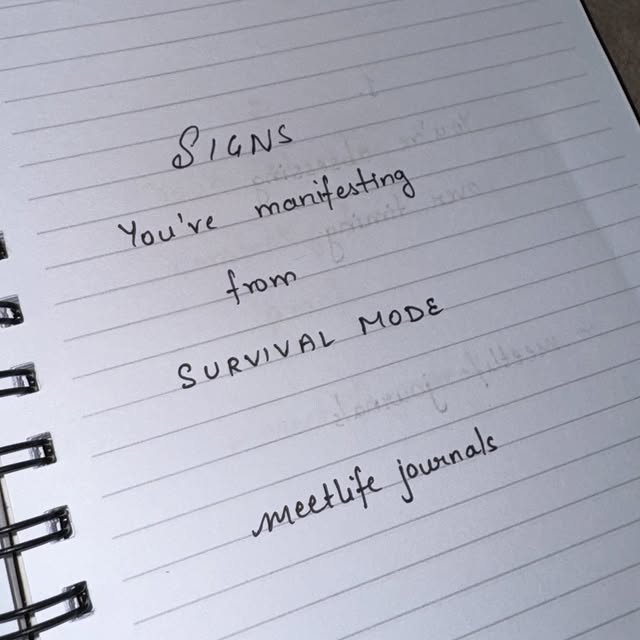 SIGNS
You're manifesting
from
SURVIVAL MODE
meetlife journals